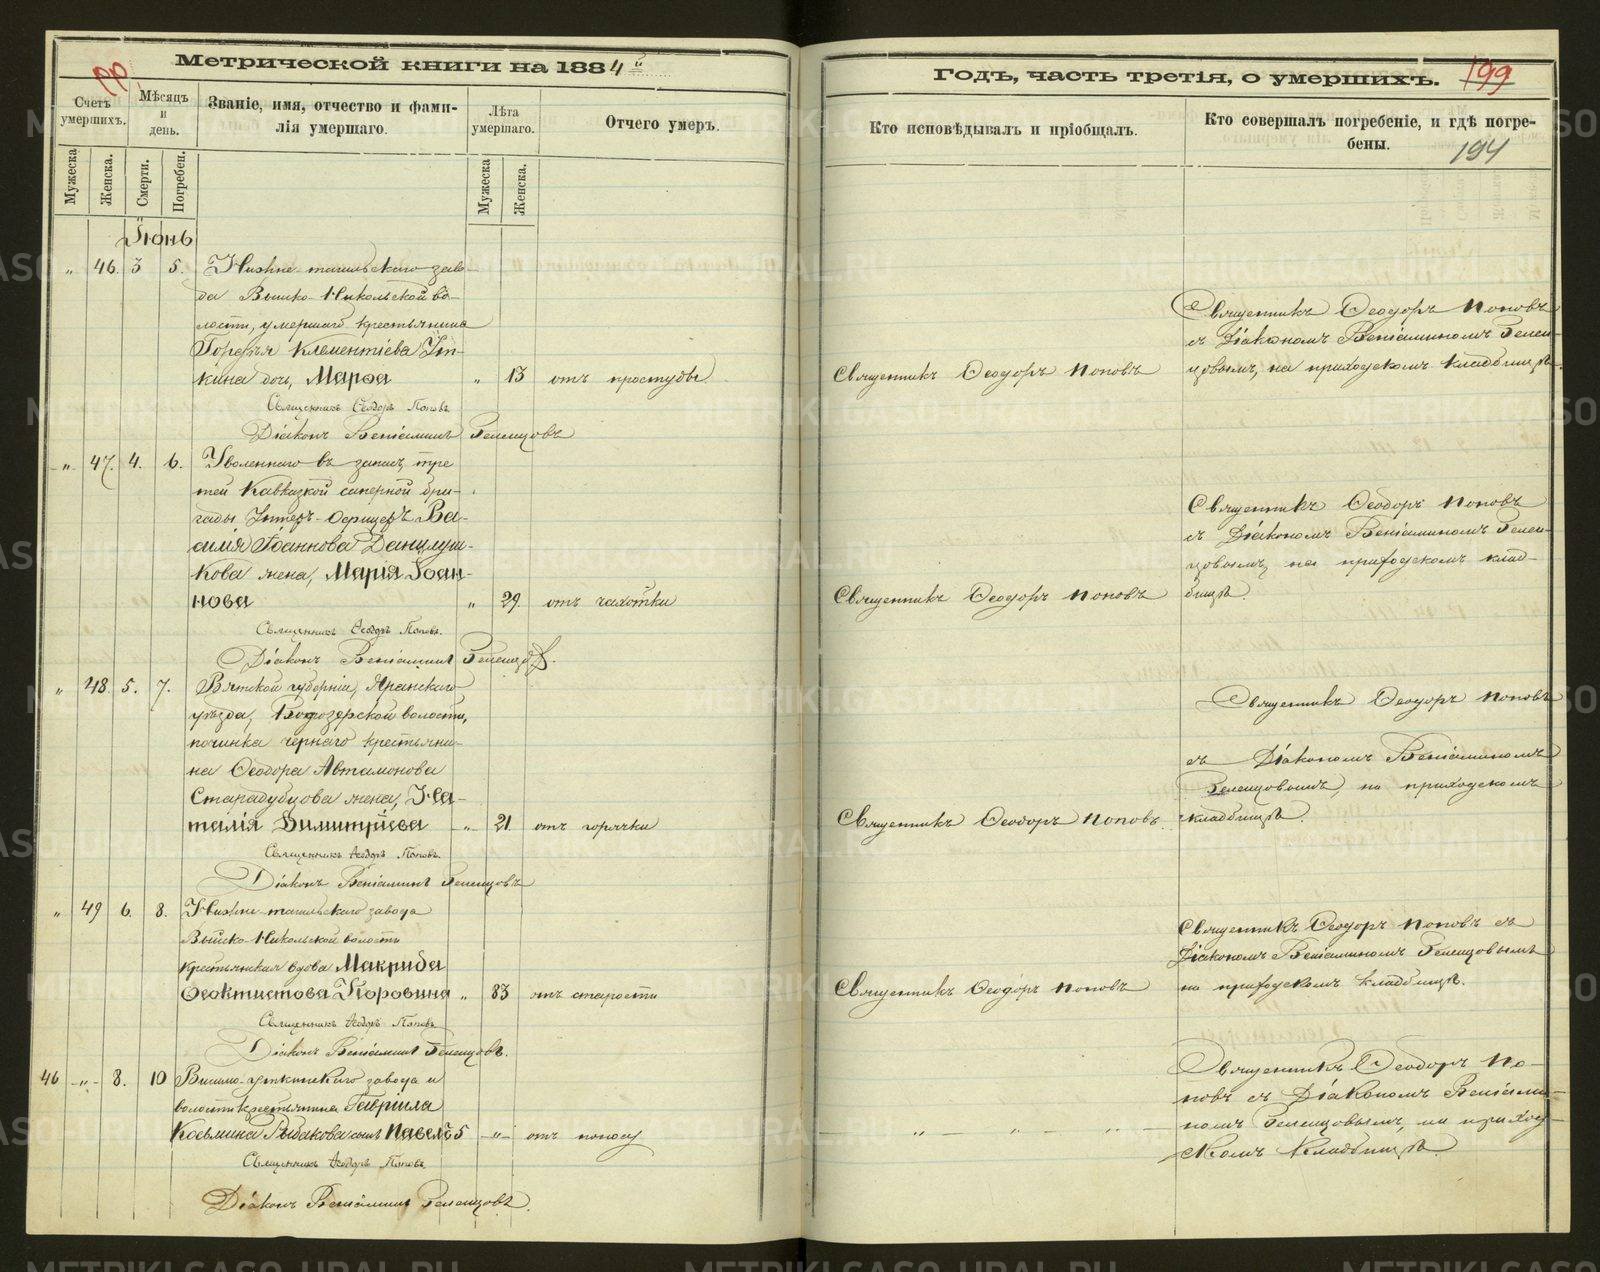 Метрической книги на 1884й
Годъ, часть третія, о умершихъ.
199
194
Счетъ умершихъ.
Мѣсяцъ и день.
Званіе, имя, отчество и фами-
лія умершаго.
Лѣта умершаго.
Отчего умеръ.
Кто исповѣдывалъ и пріобщалъ.
Кто совершалъ погребеніе, и гдѣ погре-
бены.
Мужеска
Женска.
Смерти.
Погребен.
Мужеска
Женска.
Іюнь
" 46. 3 5. Нижне-тагильскаго заво-
да Выйско-Никольской во-
лости, умершаго крестьянина
Клементіева
кина дочь, Марѳа " 13 отъ простуды.
Священникъ Ѳеодоръ Поповъ
Священникъ Ѳеодоръ Поповъ
съ Діакономъ Веніаминомъ
на приходскомъ кладбищѣ.
Священникъ Ѳеодоръ Поповъ
Діаконъ Веніаминъ
" 47. 4. 6. Уволеннаго въ запасъ, тре-
тей Кавказкой саперной бри-
гады Унтеръ-Офицеръ Ва-
силія Іоаннова Данилуш-
кова жена, Марія Іоан-
нова " 29. отъ чахотки
Священникъ Ѳеодоръ Поповъ
Священникъ Ѳеодоръ Поповъ
съ Діакономъ Веніаминомъ
на приходскомъ клад-
бищѣ.
Священникъ Ѳеодоръ Поповъ.
Діаконъ Веніаминъ
" 48. 5. 7. Вятской губерніи, Яранскаго
уѣзда, волости,
починка чернаго крестьяни-
на Ѳеодора Автамонова
Стародубцова жена, На-
талія Димитріева -"- 21. отъ горячки
Священникъ Ѳеодоръ Поповъ.
Священникъ Ѳеодоръ Поповъ
съ Діакономъ Веніаминомъ
на приходскомъ
кладбищѣ.
Священникъ Ѳеодоръ Поповъ.
Діаконъ Веніаминъ
" 49 6. 8. Нижне-тагильскаго завода
Выйско-Никольской волости
крестьянская вдова Макрида
Ѳеоктистова " 83 отъ старости
Священникъ Ѳеодоръ Поповъ
Священникъ Ѳеодоръ Поповъ съ
Діакономъ Веніаминомъ
на приходскомъ кладбищѣ.
Священникъ Ѳеодоръ Поповъ
Діаконъ Веніаминъ
46 -"- 8. 10 Висимо-уткинскаго завода и
волости крестьянина Гавріила
Козьмина Рыбакова сынъ Павелъ 5 -"- отъ поносу
" " "
Священникъ Ѳеодоръ По-
повъ съ Діакономъ Веніами-
номъ на приход-
скомъ кладбищѣ.
Священникъ Ѳеодоръ Поповъ
Діаконъ Веніаминъ
METRIKI.GASO-URAL.RU